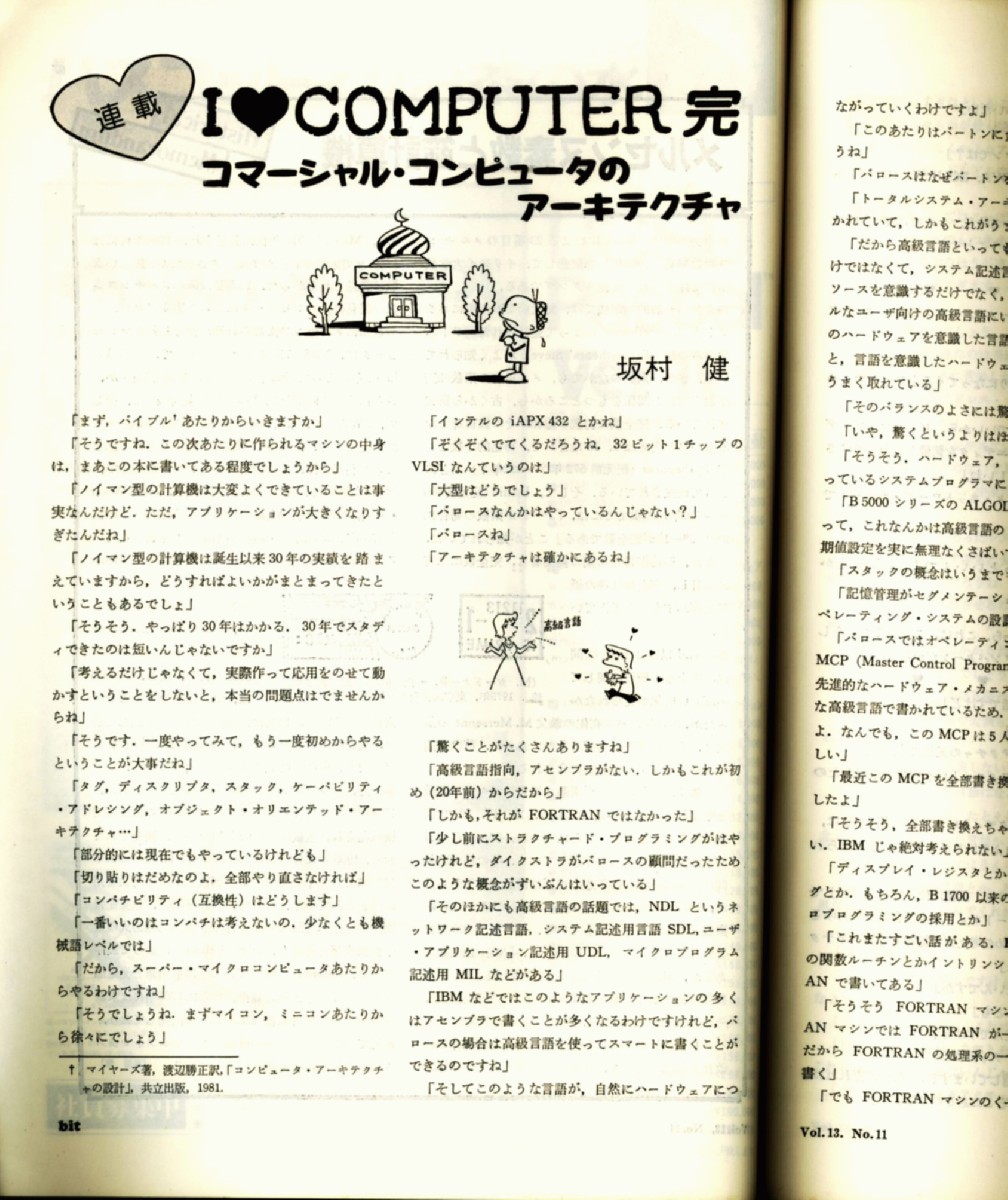 連載
I♥COMPUTER 完
コマーシャル・コンピュータの
アーキテクチャ
COMPUTER
坂村 健
「まず，バイブル†あたりからいきますか」
「そうですね．この次あたりに作られるマシンの中身
は，まあこの本に書いてある程度でしょうから」
「ノイマン型の計算機は大変よくできていることは事
実なんだけど．ただ，アプリケーションが大きくなりす
ぎたんだね」
「ノイマン型の計算機は誕生以来30年の実績を踏ま
えていますから，どうすればよいかがまとまってきたと
いうこともあるでしょ」
「そうそう．やっぱり30年はかかる．30年でスタデ
ィできたのは短いんじゃないですか」
「考えるだけじゃなくて，実際作って応用をのせて動
かすということをしないと，本当の問題点はでませんか
らね」
「そうです．一度やってみて，もう一度初めからやる
ということが大事だね」
「タグ，ディスクリプタ，スタック，ケーパビリティ
・アドレシング，オブジェクト・オリエンテッド・アー
キテクチャ…」
「部分的には現在でもやっているけれども」
「切り貼りはだめなのよ．全部やり直さなければ」
「コンパチビリティ（互換性）はどうします」
「一番いいのはコンパチは考えないの．少なくとも機
械語レベルでは」
「だから，スーパー・マイクロコンピュータあたりか
らやるわけですね」
「そうでしょうね．まずマイコン，ミニコンあたりか
ら徐々にでしょう」
† マイヤーズ著，渡辺勝正訳，「コンピュータ・アーキテクチ
ャの設計」，共立出版，1981.
bit
「インテルの iAPX 432 とかね」
「ぞくぞくでてくるだろうね．32ビット1チップの
VLSI なんていうのは」
「大型はどうでしょう」
「バロースなんかはやっているんじゃない？」
「バロースね」
「アーキテクチャは確かにあるね」
高級言語
「驚くことがたくさんありますね」
「高級言語指向，アセンブラがない．しかもこれが初
め（20年前）からだから」
「しかも，それが FORTRAN ではなかった」
「少し前にストラクチャード・プログラミングがはや
ったけれど，ダイクストラがバロースの顧問だったため
このような概念がずいぶんはいっている」
「そのほかにも高級言語の話題では，NDL というネ
ットワーク記述言語，システム記述用言語 SDL，ユーザ
・アプリケーション記述用 UDL，マイクロプログラム
記述用 MIL などがある」
「IBM などではこのようなアプリケーションの多く
はアセンブラで書くことが多くなるわけですけれど，バ
ロースの場合は高級言語を使ってスマートに書くことが
できるのですね」
「そしてこのような言語が，自然にハードウェアにつ
ながっていくわけですよ」
「このあたりはバートンに
うね」
「バロースはなぜバートン
「トータルシステム・アー
かれていて，しかもこれがう
「だから高級言語といっても
けではなくて，システム記述
ソースを意識するだけでなく，
ルなユーザ向けの高級言語にい
のハードウェアを意識した言語
と，言語を意識したハードウェ
うまく取れている」
「そのバランスのよさには驚
「いや，驚くというよりはほ
「そうそう．ハードウェア，
っているシステムプログラマに
「B 5000 シリーズの ALGOL
って，これなんかは高級言語の
期値設定を実に無理なくさばい
「スタックの概念はいうまで
「記憶管理がセグメンテーシ
ペレーティング・システムの設
「バロースではオペレーティ
MCP (Master Control Program
先進的なハードウェア・メカニス
な高級言語で書かれているため，
よ．なんでも，この MCP は5人
しい」
「最近この MCP を全部書き換
したよ」
「そうそう，全部書き換えちゃ
い．IBM じゃ絶対考えられない」
「ディスプレイ・レジスタとか
グとか．もちろん，B 1700 以来の
ロプログラミングの採用とか」
「これまたすごい話がある．
の関数ルーチンとかイントリンシ
AN で書いてある」
「そうそう FORTRAN マシン
AN マシンでは FORTRAN が一
だから FORTRAN の処理系の一
書く」
「でも FORTRAN マシンのく
Vol. 13. No. 11